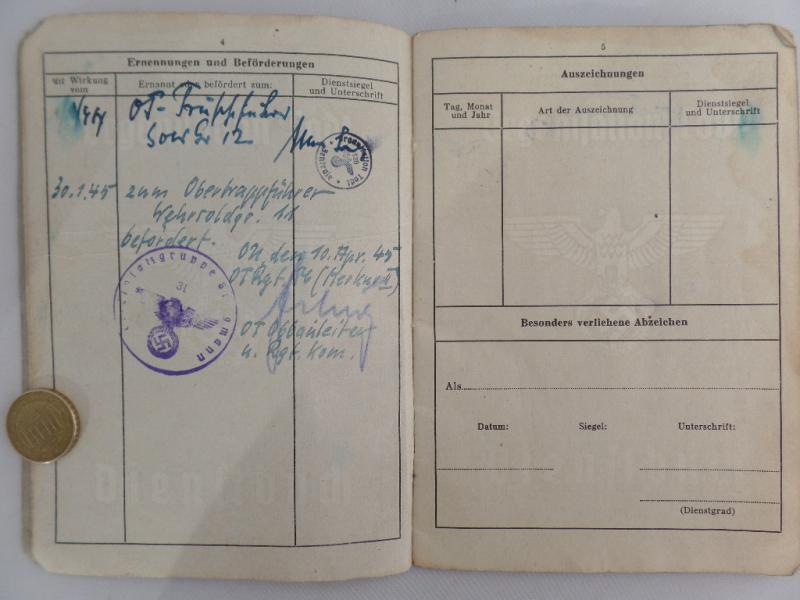 4
Ernennungen und Beförderungen
Mit Wirkung
vom
Ernannt oder befördert zum:
Dienstsiegel
und Unterschrift
OT-Truppführer
12
Organisation Todt
30.1.45 zum Obertruppführer
Wehrsoldgr. 11
befördert.
OU, den 10. Apr. 45
OT Rgt.
OT
u. Rgt. Kom.
31
5
Auszeichnungen
Tag, Monat
und Jahr
Art der Auszeichnung
Dienstsiegel
und Unterschrift
Besonders verliehene Abzeichen
Als
Datum:
Siegel:
Unterschrift:
(Dienstgrad)